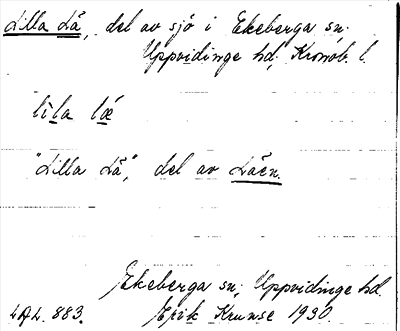 Lilla Lå, del av sjö i Ekeberga sn.
Uppvidinge hd, Kronob. l.
lìla lǽ
"Lilla Lå", del av Låen.
Ekeberga sn, Uppvidinge hd.
LAL. 883. Erik Krunse 1930.